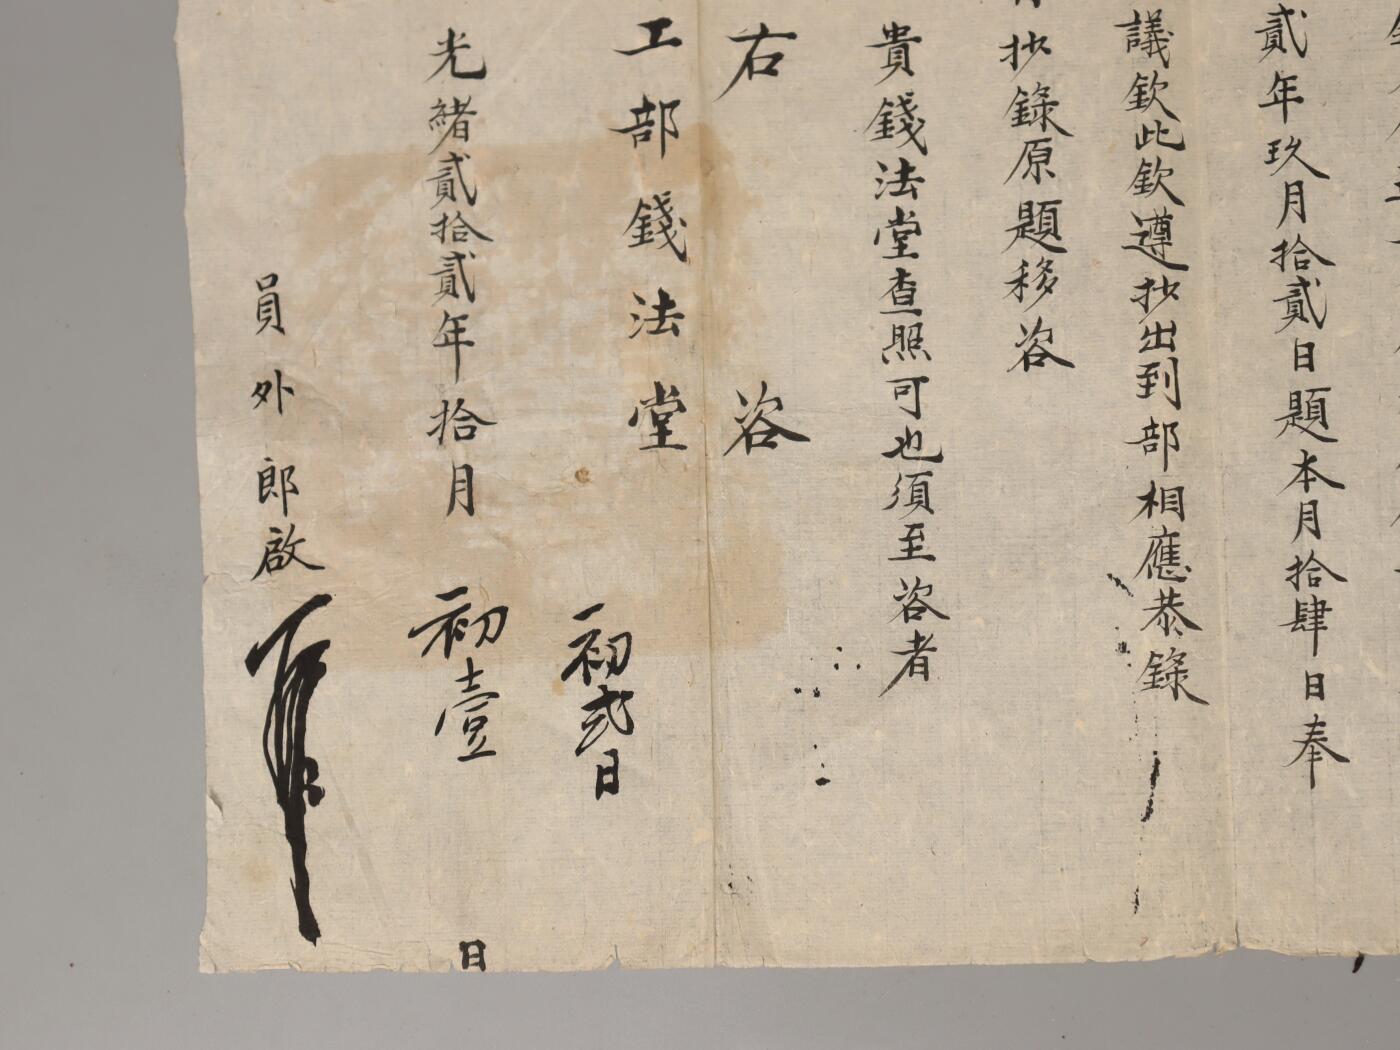 貳年玖月拾貳日題本月拾肆日奉
議欽此欽遵抄出到部相應恭錄
抄錄原題移咨
貴錢法堂查照可也須至咨者
右咨
工部錢法堂
初貳日
光緒貳拾貳年拾月初壹日
員外郎啟